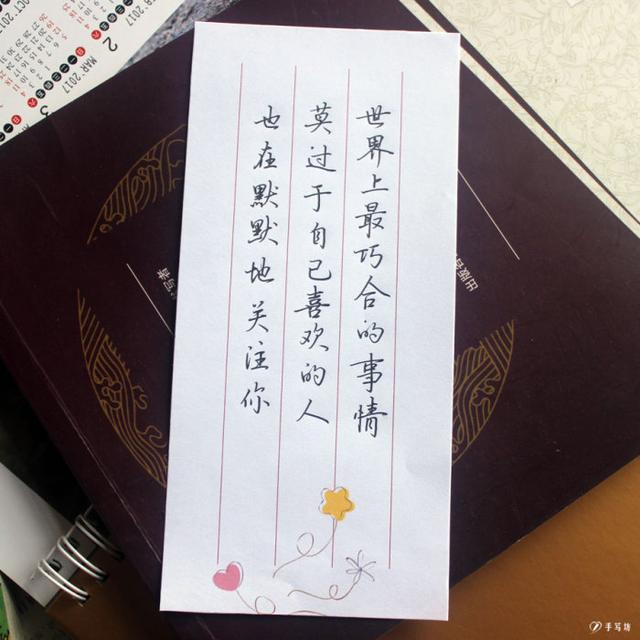 世界上最巧合的事情
莫过于自己喜欢的人
也在默默地关注你
MAR 2017
2
手写坊